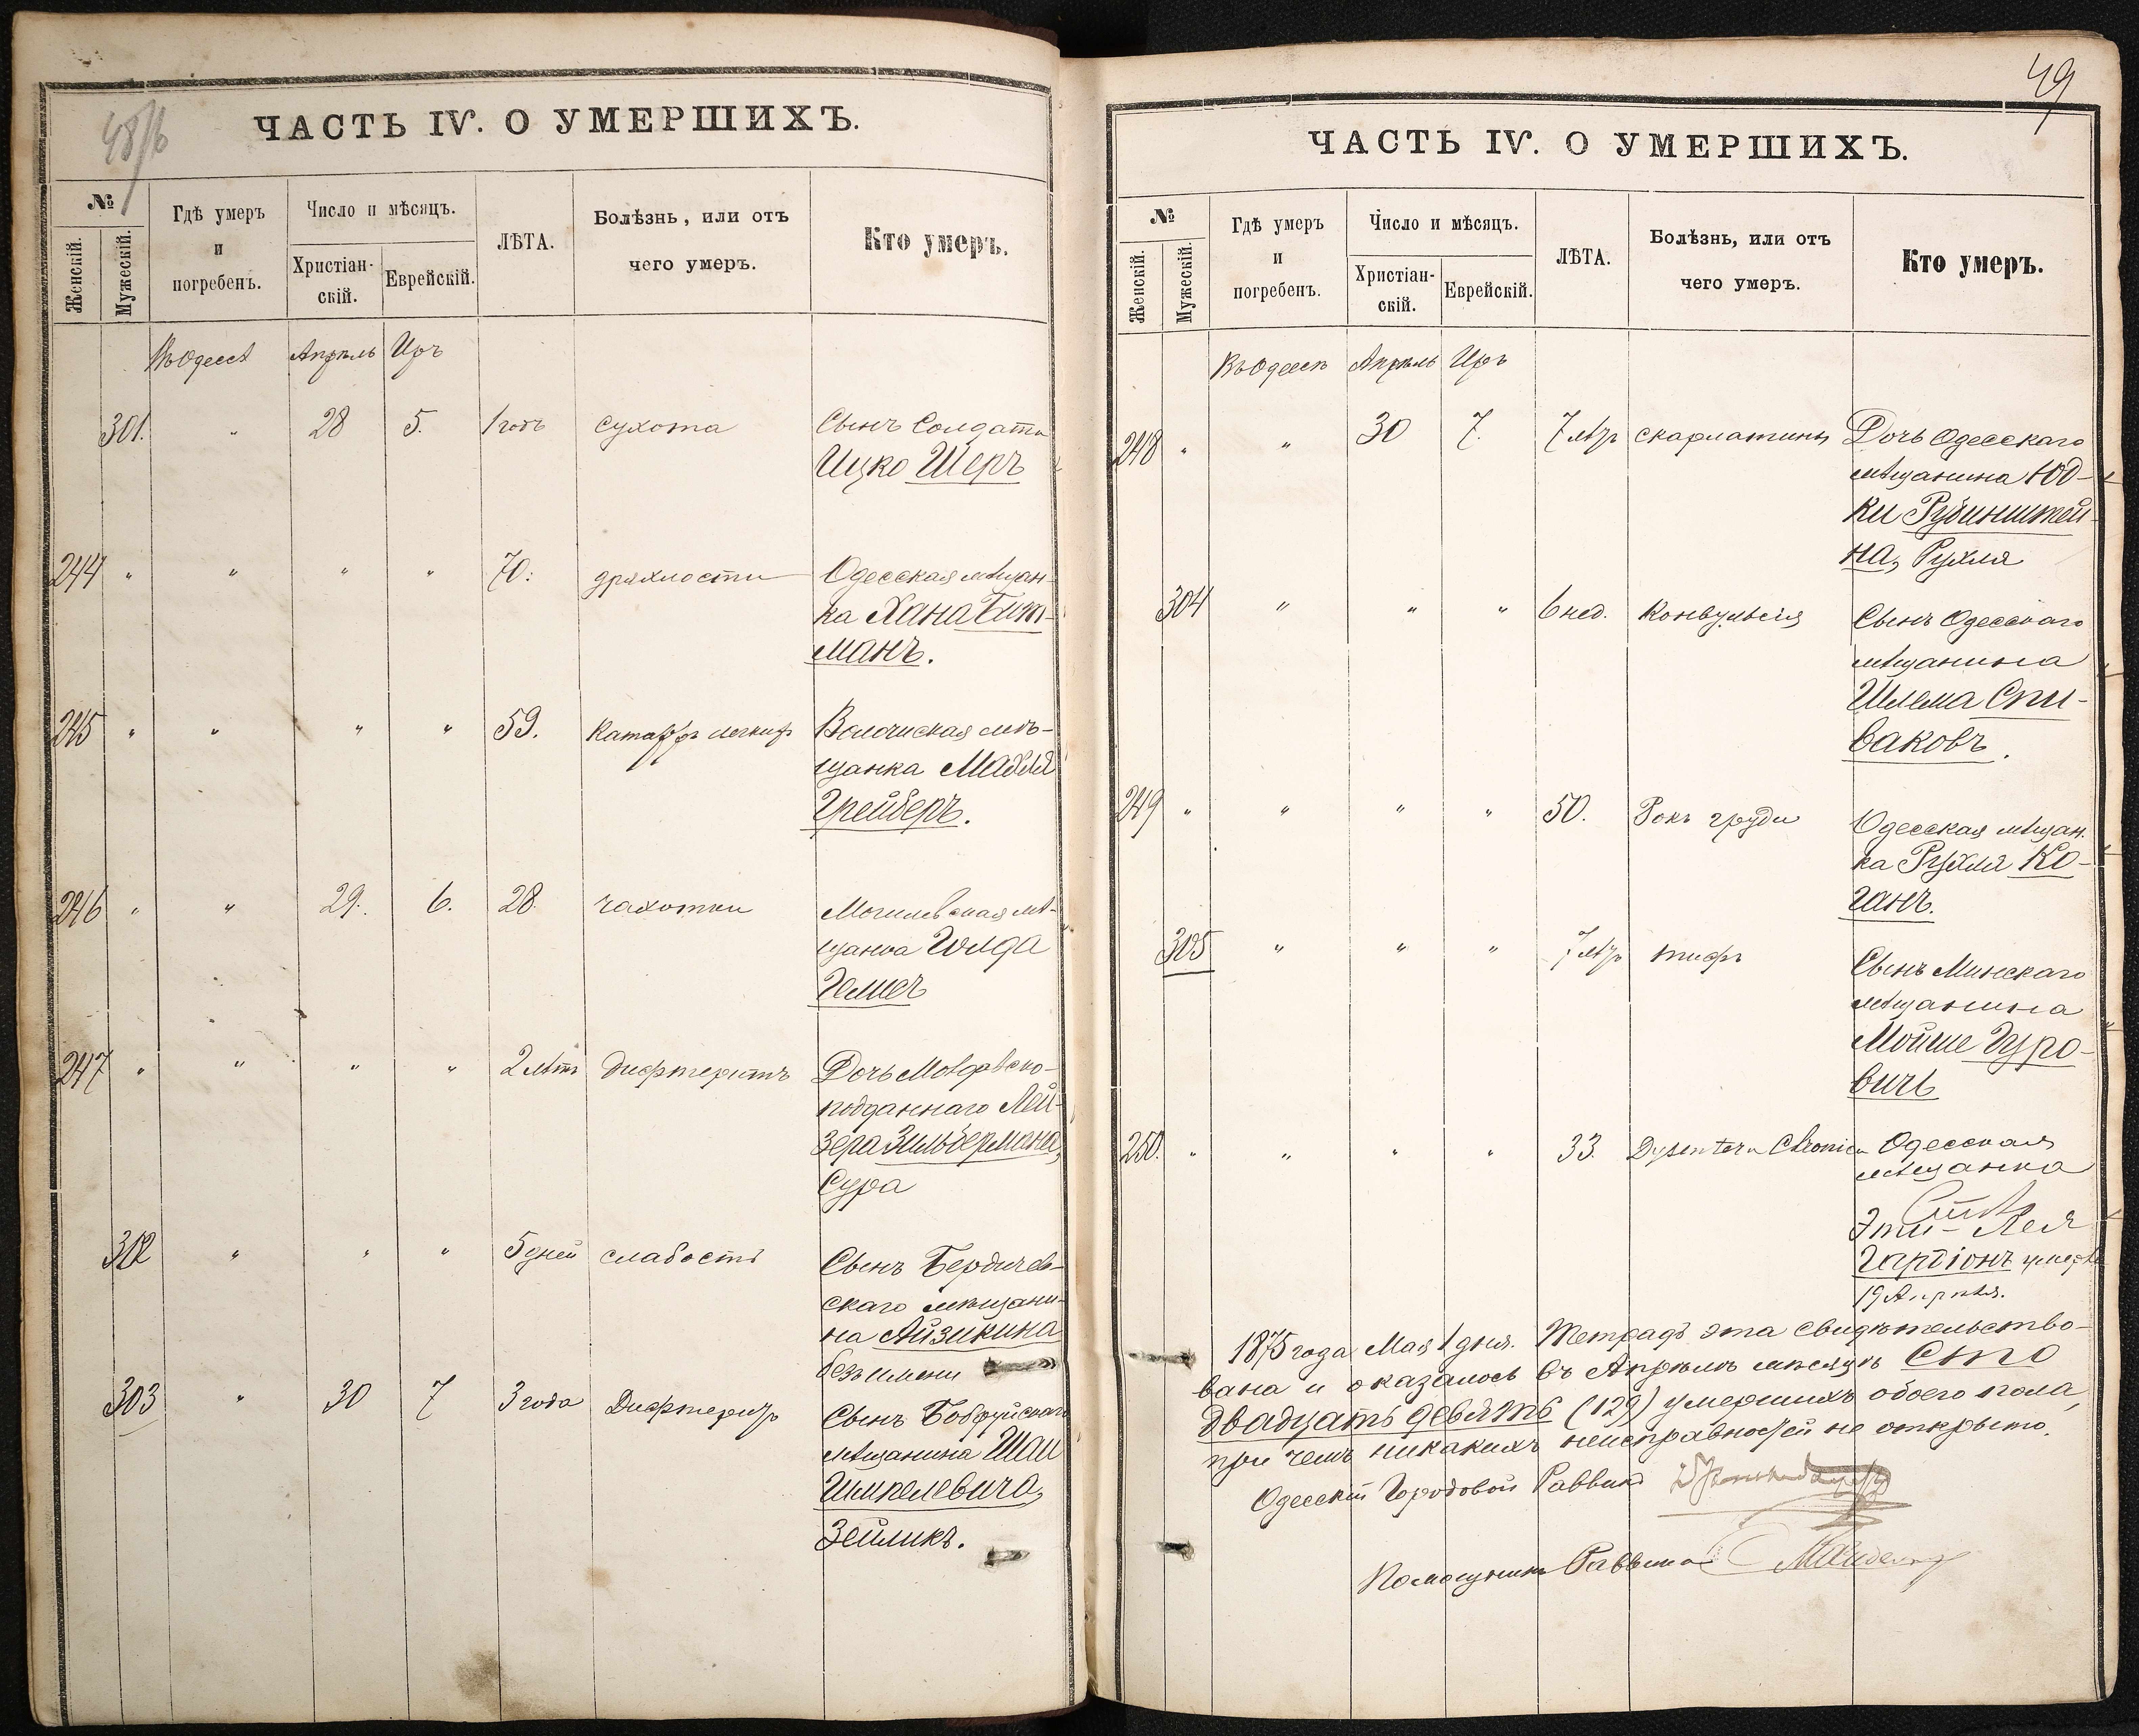 48/б
ЧАСТЬ IV. О УМЕРШИХЪ.
№
Женскій.
Мужескій.
Гдѣ умеръ
и
погребенъ.
Число и мѣсяцъ.
Христіан-
скій.
Еврейскій.
ЛѢТА.
Болѣзнь, или отъ
чего умеръ.
Кто умеръ.
Въ Одессѣ Апрѣль Иръ
301. " 28 5. 1 годъ сухота Сынъ Солдата
Ицко Шеръ
244 " " " " 70. дряхлости Одесская мѣщан-
ка Хана Гит-
манъ.
245 " " " " 59. Катарръ легкихъ Волочиская мѣ-
щанка Мабля
Грейберъ.
246 " " 29. 6. 28. чахотки Могилевская мѣ-
щанка Голда
247 " " " " 2 лѣтъ Дифтеритъ Дочь
подданнаго Лей-
зера Зильбермана,
Сура
302 " " " 5 дней слабость Сынъ Бердичев-
скаго мѣщани-
на Айзикина
безъ имени
303 " 30 7 3 года Дифтеритъ Сынъ Бобруйскаго
мѣщанина Шаи
Шмкелевича,
Зейликъ.
49
ЧАСТЬ IV. О УМЕРШИХЪ.
№
Женскій.
Мужескій.
Гдѣ умеръ
и
погребенъ.
Число и мѣсяцъ.
Христіан-
скій.
Еврейскій.
ЛѢТА.
Болѣзнь, или отъ
чего умеръ.
Кто умеръ.
Въ Одессѣ Апрѣль Иръ
248 " " 30 7. 7 лѣтъ скарлатины Дочь Одесскаго
мѣщанина Юд-
ки Рубинштей-
на, Рухля
304 " " " 6 нед. Конвульсія Сынъ Одесскаго
мѣщанина
Шлема Спи-
ваковъ.
249 " " " " 50. Ракъ груди Одесская мѣщан.
ка Рухля Ко-
ганъ.
305 " " " 7 лѣтъ тифъ Сынъ Минскаго
мѣщанина
Мойше Гуро-
вичъ
250. " " " " 33. Dysenteria Chronica Одесская
мѣщанка
Эти-Лея
Гартіонъ умерла
19 Апрѣля.
1875 года Мая 1 дня. Тетрадь эта свидѣтельство-
вана и оказалось въ Апрѣлѣ мѣсяцѣ Сто
двадцать девять (129) умершихъ обоего пола,
при чемъ никакихъ неисправностей не открыто.
Одесскій Городовой Раввинъ
Помощникъ Раввина